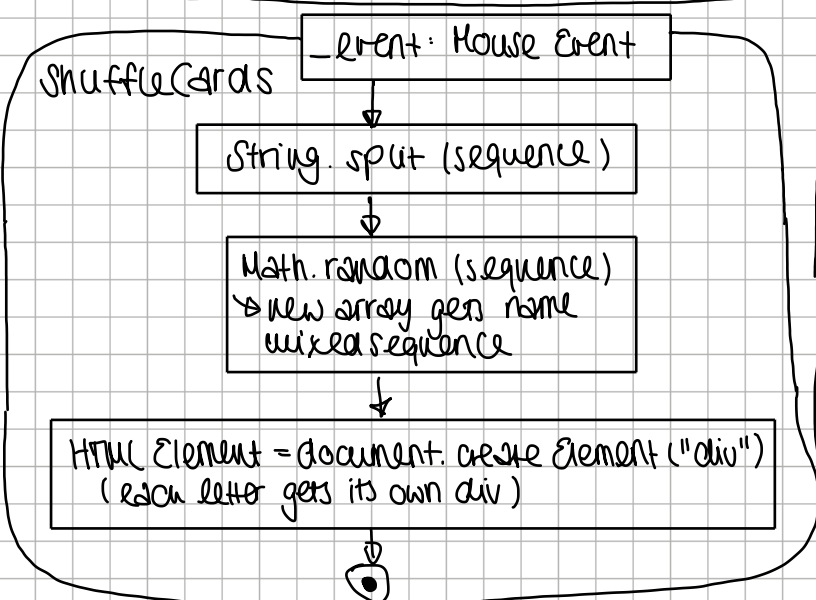 _event: Mouse Event
shuffleCards
String.split (sequence)
Math.random (sequence)
↳ new array gets name
mixedsequence
HTML Element = document.create Element ("div")
(each letter gets its own div)